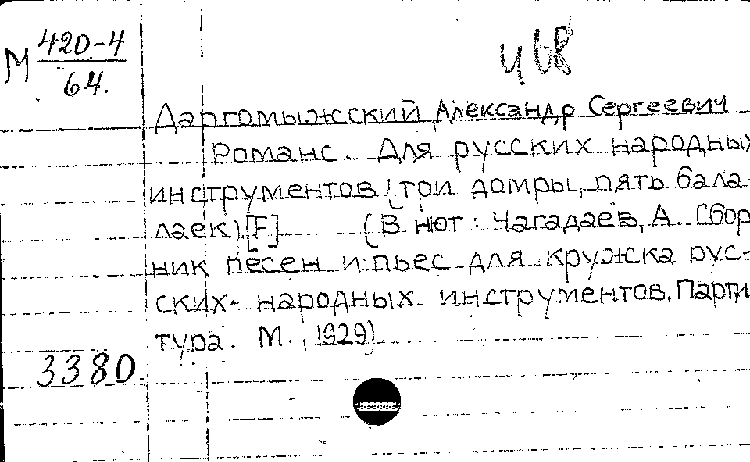 М 420-4
64.
ц 68
Даргомыжский Александр Сергеевич
Романс. Для русских народных
инструментов (три домры, пять бала-
лаек) [F] (В нот: Чагадаев, А. Сбор
ник песен и пьес для кружка рус-
ских народных инструментов. Парти
тура. М., 1929)
3380.